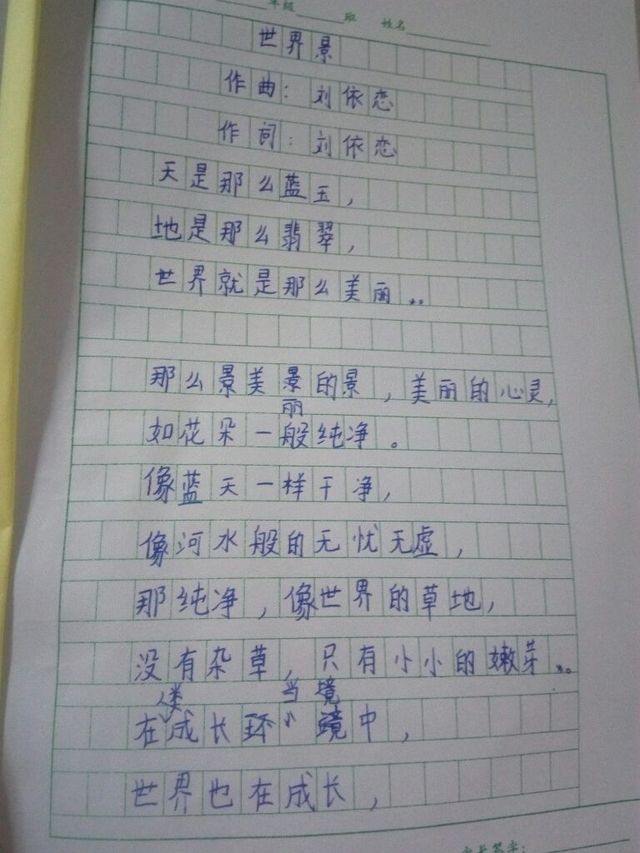 年级 班 姓名
世界景
作曲：刘依恋
作词：刘依恋
天是那么蓝玉，
地是那么翡翠，
世界就是那么美丽..
那么景美景的景，美丽的心灵，
丽
如花朵一般纯净。
像蓝天一样干净，
像河水般的无忧无虚，
那纯净，像世界的草地，
没有杂草，只有小小的嫩芽..
当境
在成长环境中，
世界也在成长，